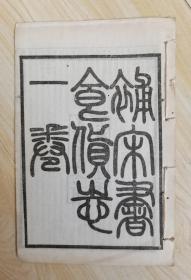 補宋書
食貨志
一卷